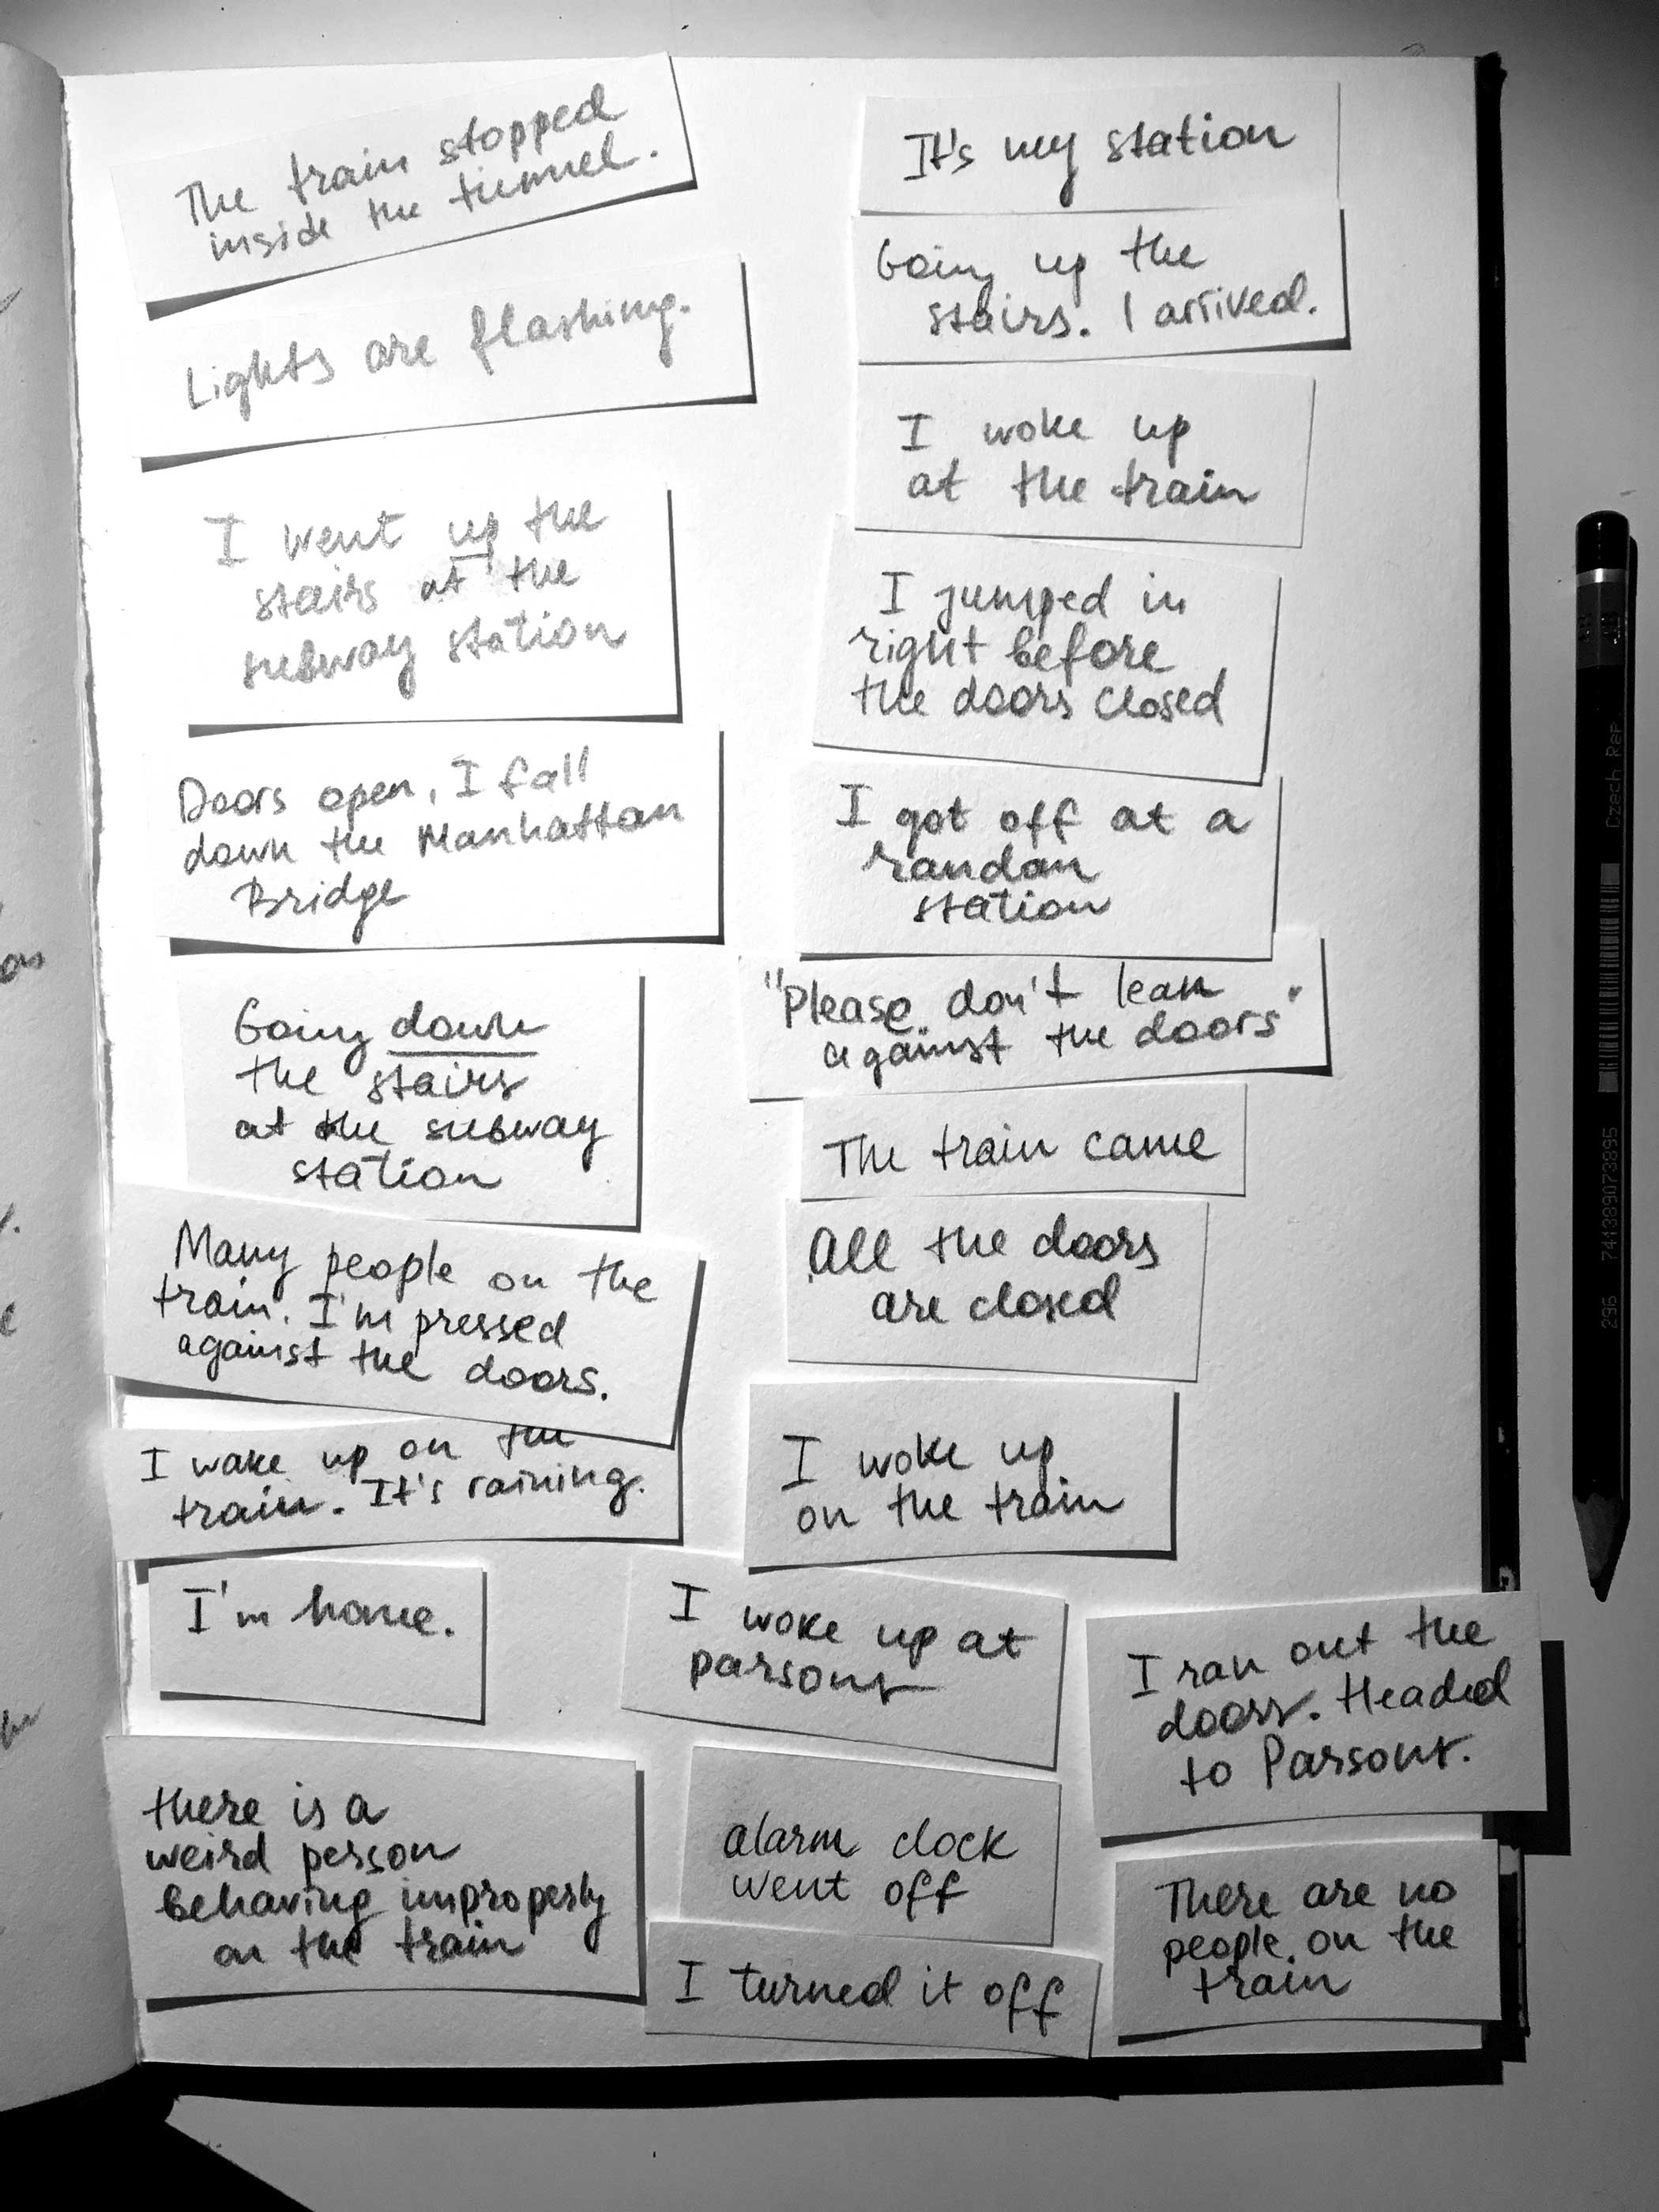 The train stopped
inside the tunnel.
Lights are flashing.
I went up the
stairs at the
subway station
Doors open, I fall
down the Manhattan
Bridge
Going down
the stairs
at the subway
station
Many people on the
train. I'm pressed
against the doors.
I wake up on the
train. It's raining.
I'm home.
there is a
weird person
behaving improperly
on the train
It's my station
Going up the
stairs. I arrived.
I woke up
at the train
I jumped in
right before
the doors closed
I got off at a
random
station
"Please don't lean
against the doors"
The train came
All the doors
are closed
I woke up
on the train
I woke up at
parsons
alarm clock
went off
I turned it off
I ran out the
doors. Headed
to Parsons.
There are no
people on the
train
Czech Rep
296 741389073895